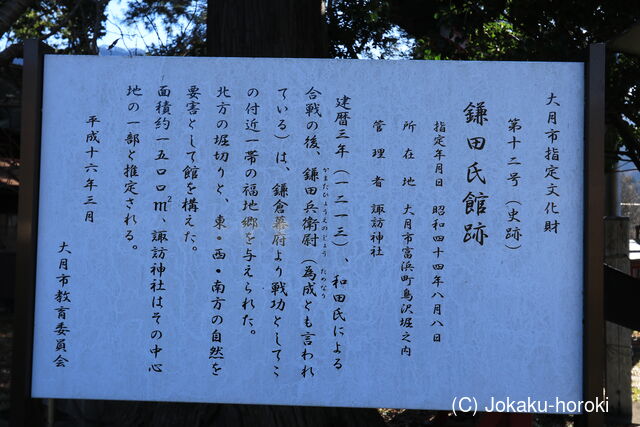 大月市指定文化財
第十二号（史跡）
鎌田氏館跡
指定年月日 昭和四十四年八月八日
所在地 大月市富浜町鳥沢堀之内
管理者 諏訪神社
建暦三年（一二一三）、和田氏による
合戦の後、鎌田兵衛尉（為成とも言われ
かまたひょうえのじょう ためなり
ている）は、鎌倉幕府より戦功としてこ
の付近一帯の福地郷を与えられた。
北方の堀切りと、東・西・南方の自然を
要害として館を構えた。
面積約一五〇〇m²、諏訪神社はその中心
地の一部と推定される。
平成十六年三月
大月市教育委員会
(C) Jokaku-horoki